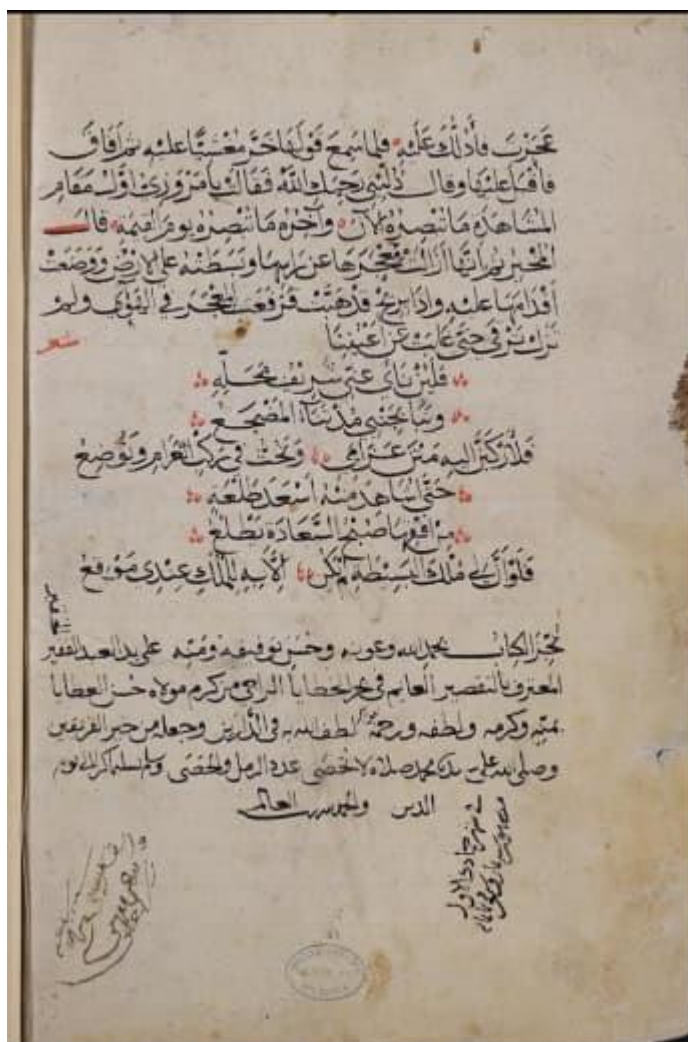 عجزت فأدلك عليه فلما سمع قولها خر مغشيا عليه ثم أفاق
فأقبل عليها وقال دليني رحمك الله فقالت يا مروزي اول مقام
المشاهدة ما تبصره الآن وآخره ما تبصره يوم القيمة قال
المخبر ثم انها ازالت معجرها عن راسها وبسطته على الارض ووضعت
أقدامها عليه واذا بريح قد هبت فرفعت المعجر في الهوي ولم
تزل ترقى حتى غابت عن اعيننا
شعر
فلين نأى عني شريف محله
ونبا بجنبي مذ نأء المضجع
فلأركبن اليه متن عزايمي وتخب في ركب الغرام وتوضع
حتى اشاهد منه اسعد طلعة
من افقها صبح السعادة يطلع
فلو ان لي ملك البسيطة لم يكن الا به للملك عندي موقع
نجز الكتاب بحمد الله وعونه وحسن توفيقه ومنه على يد العبد الفقير
الحقير
المعترف بالتقصير العايم في بحر الخطايا الراجي من كرم مولاه حسن العطايا
بمنه وكرمه ولطفه ورحمته لطف الله به في الدارين وجعله من خير الفريقين
وصلى الله على سيدنا محمد صلاة لا تحصى عدد الرمل والحصى وسلم تسليما كثيرا الى يوم
الدين والحمد لله رب العالمين
في شهر جمادى الاول